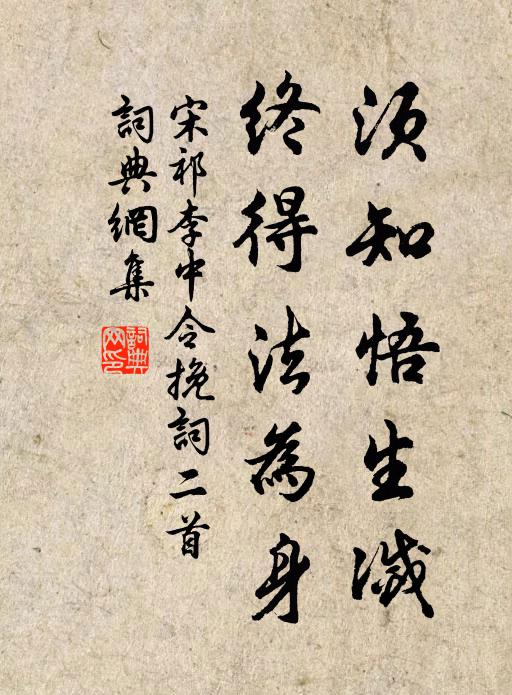 須知悟生滅
終得法為身
宋祁李中令挽詞二首
詞典網集
詞典网印